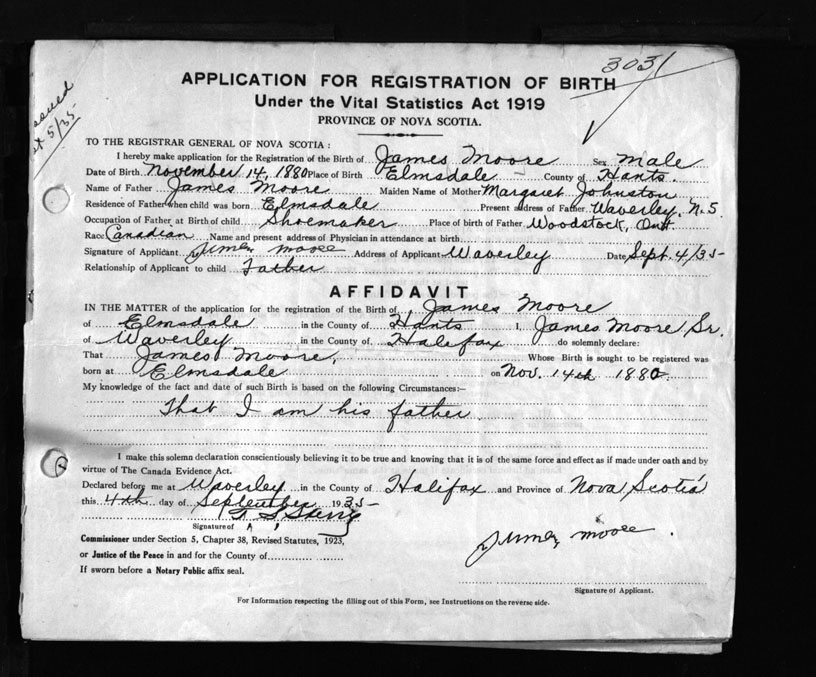 3031
issued
5/35
APPLICATION FOR REGISTRATION OF BIRTH
Under the Vital Statistics Act 1919
PROVINCE OF NOVA SCOTIA.
TO THE REGISTRAR GENERAL OF NOVA SCOTIA :
I hereby make application for the Registration of the Birth of James Moore Sex male
Date of Birth November 14, 1880 Place of Birth Elmsdale County of Hants.
Name of Father James Moore Maiden Name of Mother Margaret Johnston
Residence of Father when child was born Elmsdale Present address of Father Waverley, N.S.
Occupation of Father at Birth of child Shoemaker Place of birth of Father Woodstock, Ont.
Race Canadian Name and present address of Physician in attendance at birth
Signature of Applicant James Moore Address of Applicant Waverley Date Sept. 4/35
Relationship of Applicant to child Father
AFFIDAVIT
IN THE MATTER of the application for the registration of the Birth of James Moore
of Elmsdale in the County of Hants I, James Moore Sr.
of Waverley in the County of Halifax do solemnly declare:
That James Moore, Whose Birth is sought to be registered was
born at Elmsdale on Nov. 14th 1880.
My knowledge of the fact and date of such Birth is based on the following Circumstances:—
That I am his father
I make this solemn declaration conscientiously believing it to be true and knowing that it is of the same force and effect as if made under oath and by
virtue of The Canada Evidence Act.
Declared before me at Waverley in the County of Halifax and Province of Nova Scotia
this 4th day of September 1935
Signature of
Commissioner under Section 5, Chapter 38, Revised Statutes, 1923,
or Justice of the Peace in and for the County of
If sworn before a Notary Public affix seal.
James Moore.
Signature of Applicant.
For Information respecting the filling out of this Form, see Instructions on the reverse side.